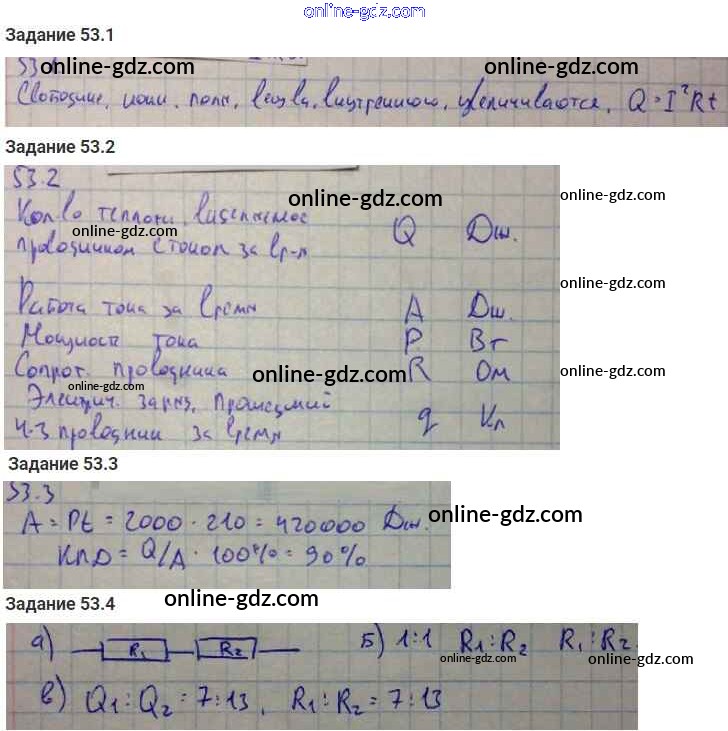 online-gdz.com
Задание 53.1
53.1
online-gdz.com online-gdz.com
Свободные, ионы, поля, внутреннюю, увеличиваются, Q = I²Rt
Задание 53.2
53.2
online-gdz.com online-gdz.com
Кол-во теплоты, выделяемое Q Дж.
online-gdz.com
проводником с током за вр-я
online-gdz.com
Работа тока за время A Дж.
Мощность тока P Вт
Сопрот. проводника R Ом
online-gdz.com online-gdz.com
online-gdz.com
Электрич. заряд, прошедший q Кл
ч-з проводник за время
Задание 53.3
53.3
A = Pt = 2000 · 210 = 420000 Дж.
online-gdz.com
КПД = Q/A · 100% = 90%
Задание 53.4
online-gdz.com
а) R₁ R₂ Б) 1:1 R₁:R₂ R₁:R₂
online-gdz.com online-gdz.com
в) Q₁:Q₂ = 7:13, R₁:R₂ = 7:13